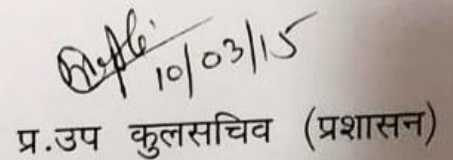 10/03/15
प्र.उप कुलसचिव (प्रशासन)